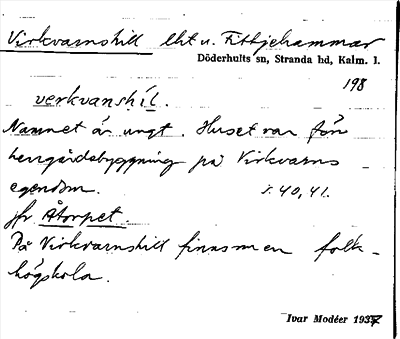 Virkvarnshill lht u. Fittjehammar
Döderhults sn, Stranda hd, Kalm. l.
198
verkvanshíl.
Namnet är ungt. Huset var förr
herrgårdsbyggning på Virkvarns
egendom. s. 40, 41.
jfr Åtorpet.
På Virkvarnshill finns nu en folk-
högskola.
Ivar Modéer 1937